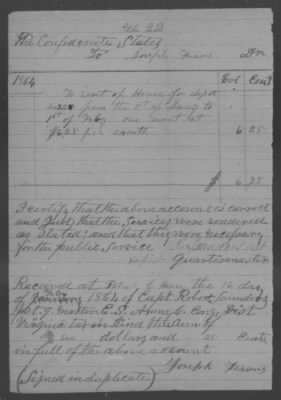 No 22
The Confederate States
To Joseph Dr
1864 Dol Cent
To Rent of House for depot
from the 1st of Jany to
1st of Feby one mont at
$6.25 per month 6 25
$ 6 25
I certify that the above account is correct
and just, that the services were rendered
as stated and that they were necessary
for the public service
Quartermaster
Received at the 16 day
of Feby 1864 of Capt Robt Saunders
Q. Master C.S. Army 6 Cong. Dist
Virginia Tax in Kind the sum of
six dollars and 25 Cents
in full of the above account
Joseph
(Signed in duplicate)